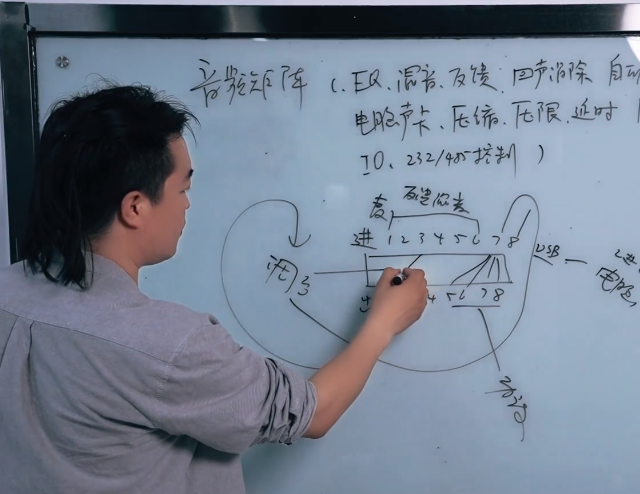 音频矩阵 (、EQ、混音、反馈、回声消除 自动
电脑声卡、压缩、压限、延时
IO、232/485控制 )
麦
进 1 2 3 4 5 6 7 8
USB
电脑
调
4 5 6 7 8